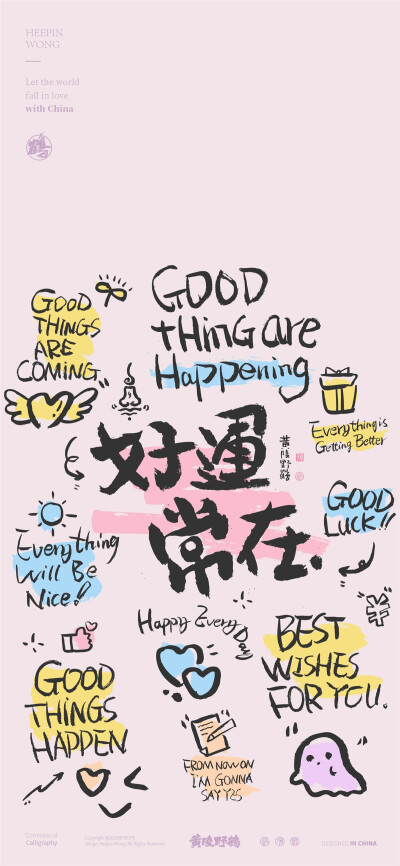 HEEPIN
WONG
Let the world
fall in love
with China
GOOD
THINGS
ARE
COMING
GOOD
tHinG are
Happening
Everything is
Getting Better
好運
常在
黃陵野鶴
GOOD
LUCK!!
Everything
Will Be
Nice!
Happy Every Day
BEST
WISHES
FOR YOU.
GOOD
THINGS
HAPPEN
FROM NOW ON
I'M GONNA
SAY YES
Commercial
Calligraphy
黃陵野鶴
DESIGNED IN CHINA